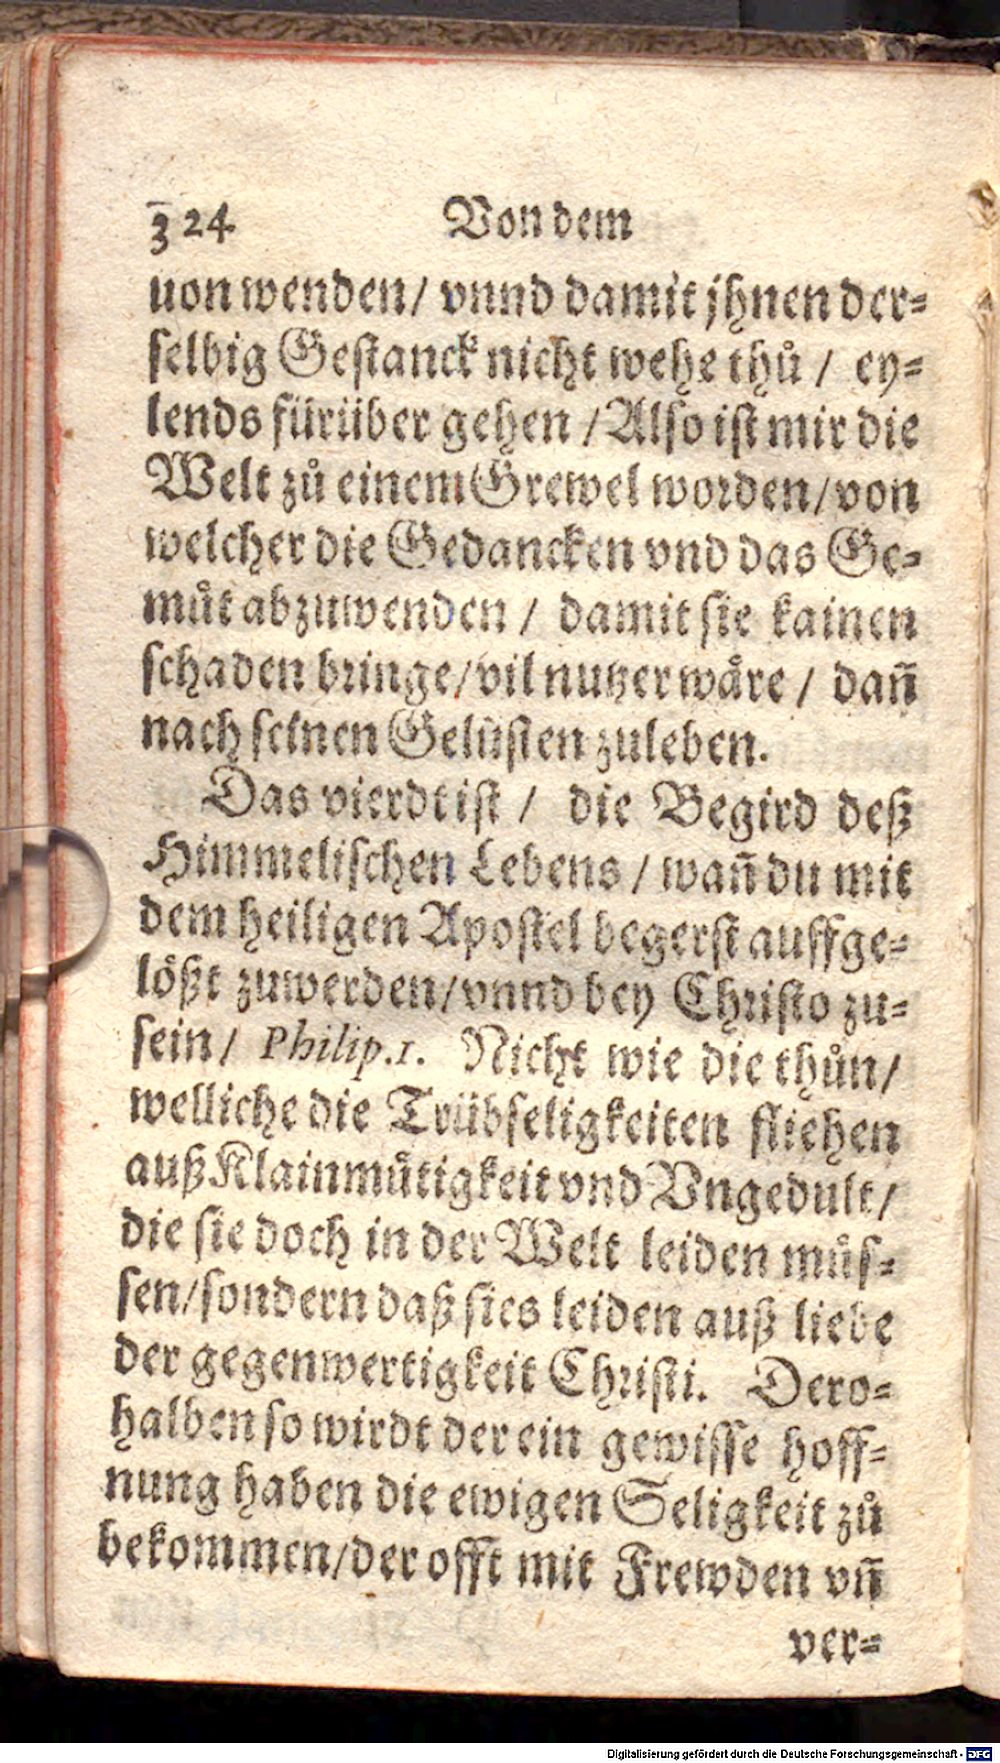 324 Von dem
uon wenden/ vnnd damit jhnen der⸗
selbig Gestanck nicht wehe thůͤ / ey⸗
lends fürüber gehen / Also ist mir die
Welt zů einem Grewel worden/ von
welcher die Gedancken vnd das Ge⸗
muͤt abzuwenden / damit sie kainen
schaden bringe/ vil nutzer waͤre / dañ
nach seinen Gelüsten zuleben.
Das vierdt ist / die Begird deß
Himmelischen Lebens / wañ du mit
dem heiligen Apostel begerst auffge⸗
lößt zuwerden/ vnnd bey Christo zu⸗
sein/ Philip.1. Nicht wie die thůn/
welliche die Trübseligkeiten fliehen
auß Klainmuͤtigkeit vnd Vngedult/
die sie doch in der Welt leiden muͤs⸗
sen/ sondern daß sies leiden auß liebe
der gegenwertigkeit Christi. Dero⸗
halben so wirdt der ein gewisse hoff⸗
nung haben die ewigen Seligkeit zů
bekommen/ der offt mit Frewden vñ
ver⸗
Digitalisierung gefördert durch die Deutsche Forschungsgemeinschaft - DFG